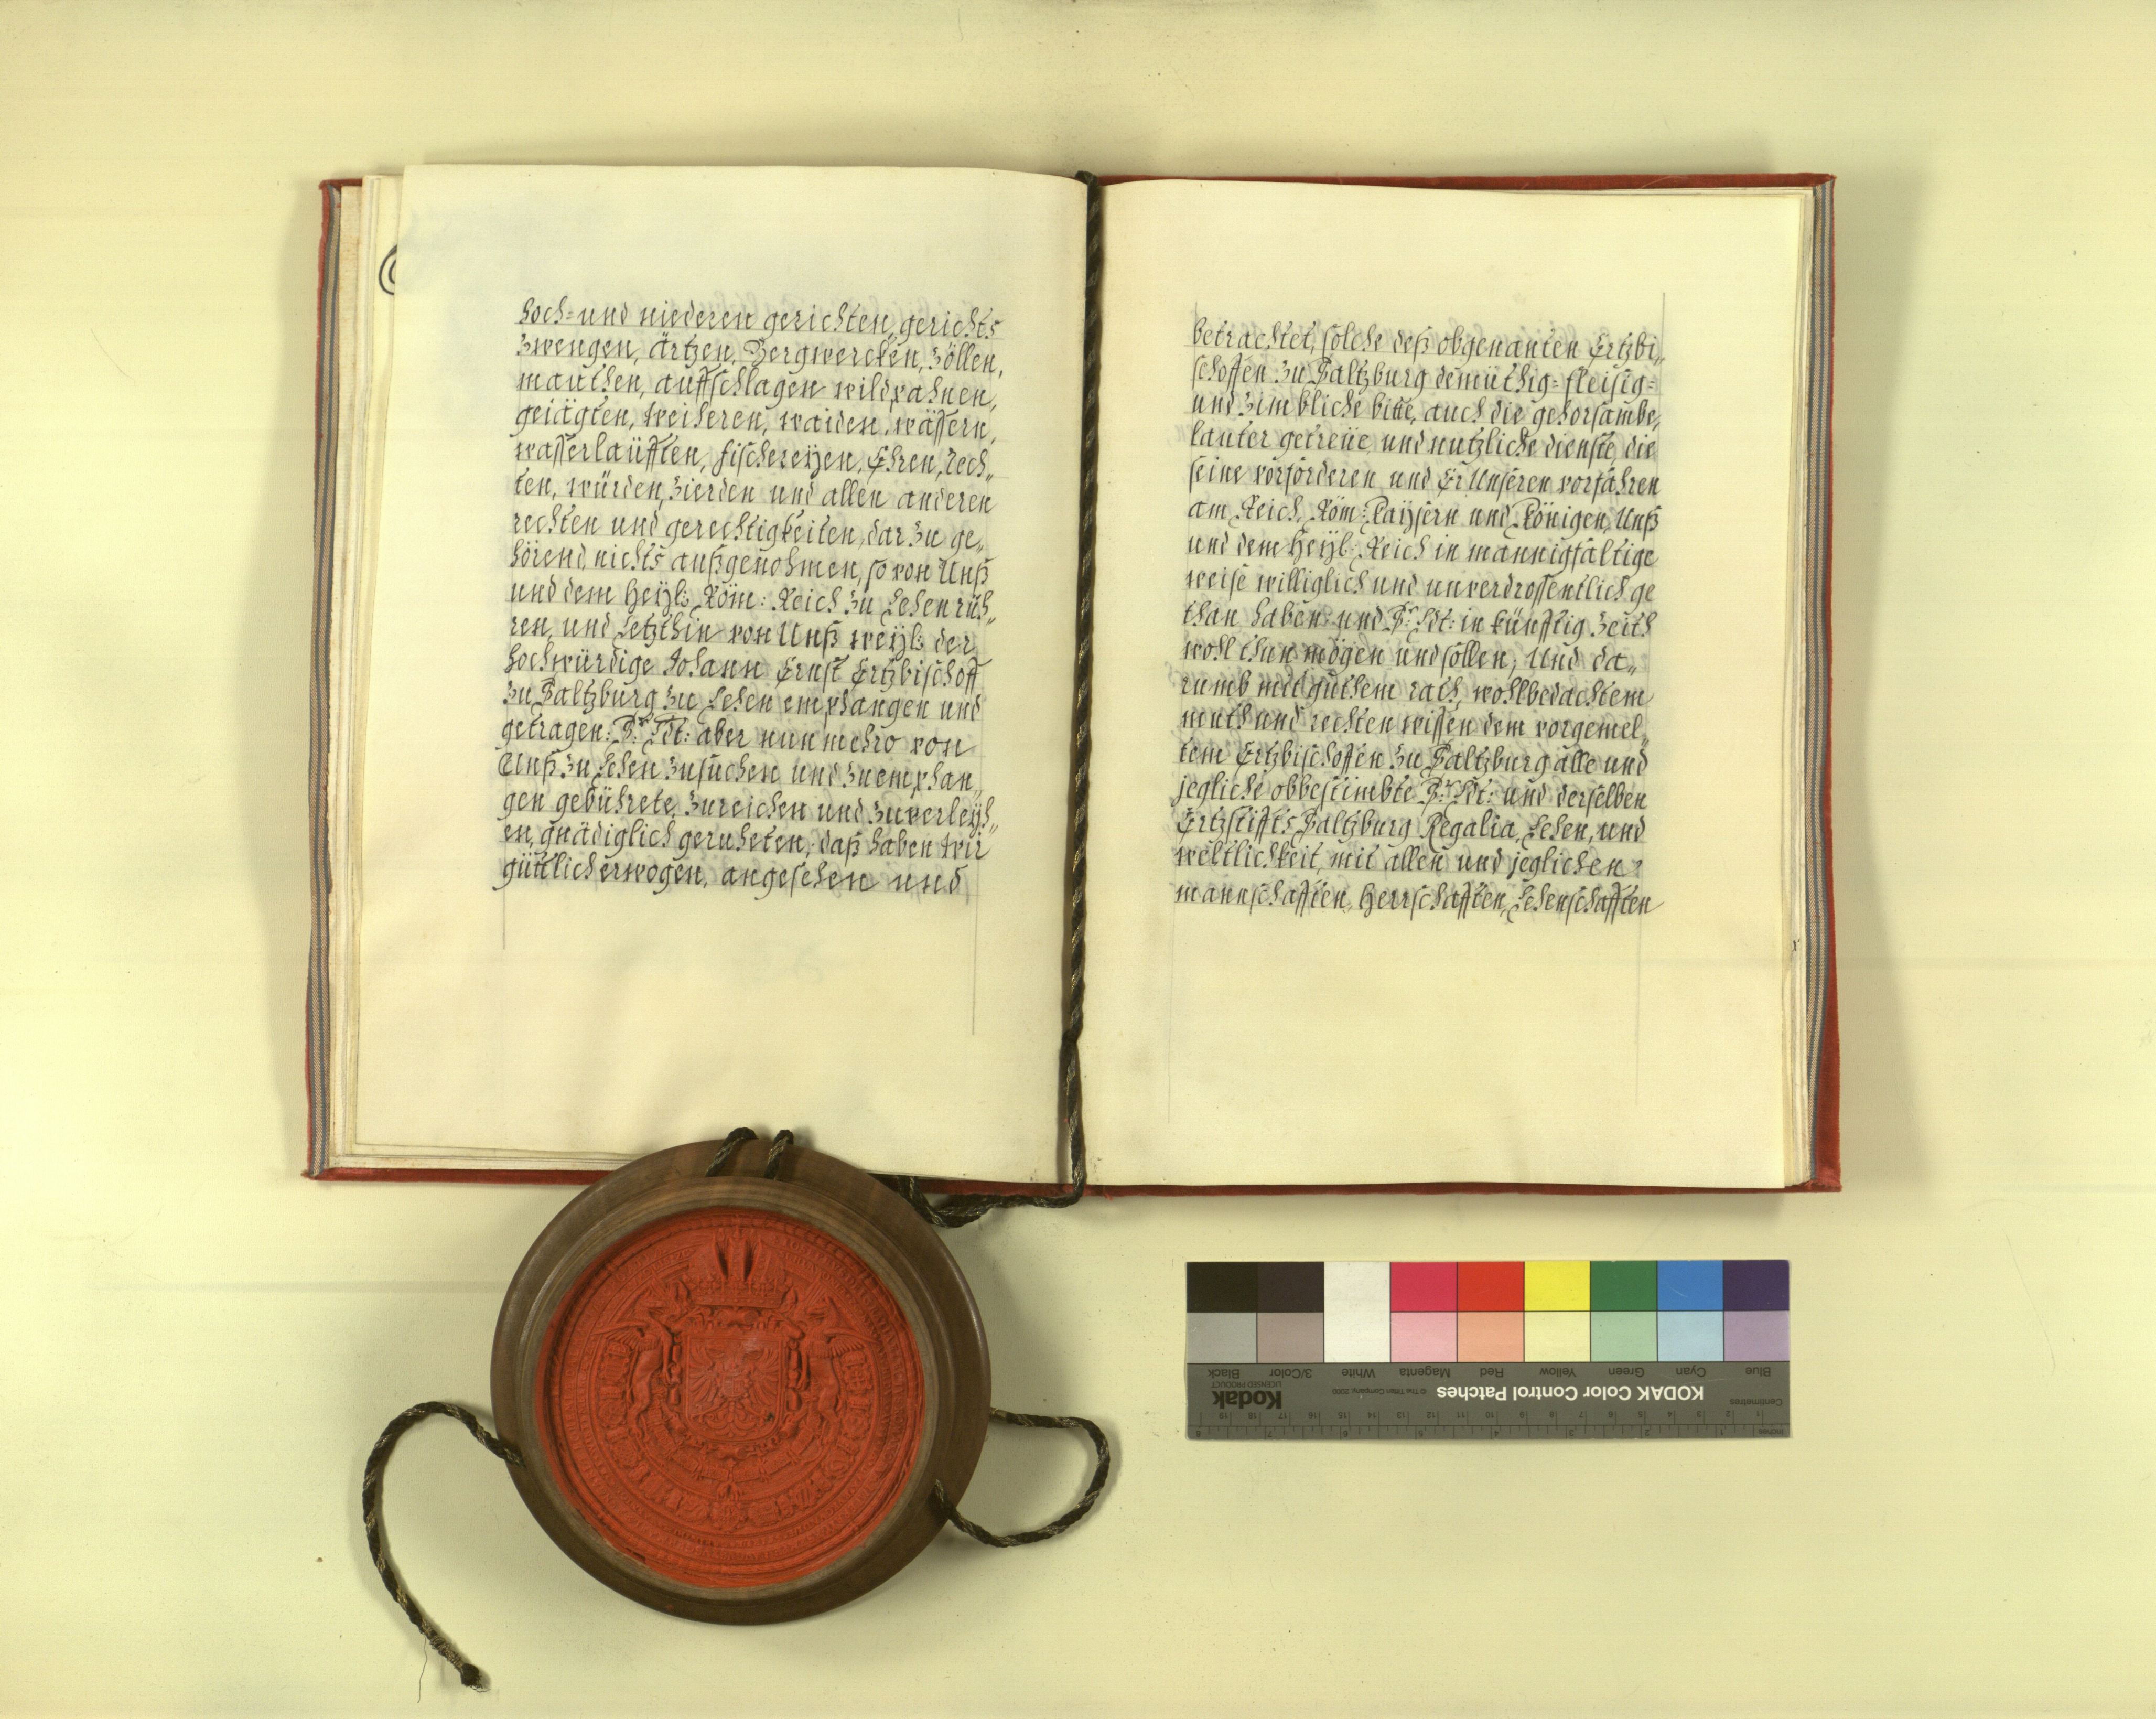 hoch= und niederen gerichten, gerichts
zwengen, ärtzen, Bergwercken, zöllen,
mauthen, auffschlagen wildpahnen,
geiägten, weiheren, waiden, wässern,
wasserlaüfften, fischereyen, Ehren, rech„
ten, würden, zierden und allen anderen
rechten und gerechtigkeiten, dar zu ge„
hörend, nichts außgenohmen, so von Unß
und dem Heyl: Röm: Reich zu Lehen rüh„
ren, und Letzthin von Unß weyl: der
hochwürdige Johann Ernst Ertzbischoff
zu Saltzburg zu Lehen emphangen und
getragen: Sr: Ldt: aber nunmehro von
Unß zu Lehen zusuchen und zuemphan„
gen gebührete, zureichen und zuverleyh„
en, gnädiglich geruheten, daß haben wir
güttlich erwogen, angesehen und
betrachtet, solche deß obgenanten Ertzbi„
schoffen zu Saltzburg demüthig= fleisig=
und zimbliche bitte, auch die gehorsambe,
lauter getreüe und nutzliche dienste, die
seine vorforderen und Er Unseren vorfahren
am Reich, Röm: Kaysern und Königen, Unß
und dem Heyl: Reich in mannigfältige
weise williglich und unverdrossentlich ge
than haben: und Sr: Ldt: in künfftig zeith
wohl thun mögen und sollen, Und da„
rumb mit guthem rath, wohlbedachtem
muth und rechten wissen dem vorgemel„
tem Ertzbischoffen zu Saltzburg alle und
jegliche obbestimbte Sr: Ldt: und derselben
Ertzstiffts Saltzburg Regalia, Lehen, und
weltlichkeit, mit allen und jeglichen
mannschafften, Herrschafften, Lehenschafften
KODAK Color Control Patches
© The Tiffen Company, 2000
Kodak
LICENSED PRODUCT
Blue Cyan Green Yellow Red Magenta White 3/Color Black
Centimetres 1 2 3 4 5 6 7 8 9 10 11 12 13 14 15 16 17 18 19
Inches 1 2 3 4 5 6 7 8